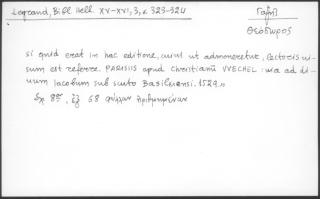 Legrand, Bibl. Hell. XV-XVI, 3, σ. 323-324
Γαζῆς
Θεόδωρος
si quid erat in hac editione, cuius ut admoneretur, lectoris vi-
sum est referre. PARISIIS apud Christianū VVECHEL: via ad di-
uum Iacobum sub scuto Basiliensi. 1529.»
Σχ. 8ον, ἐξ 68 φύλλων ἀριθμημένων